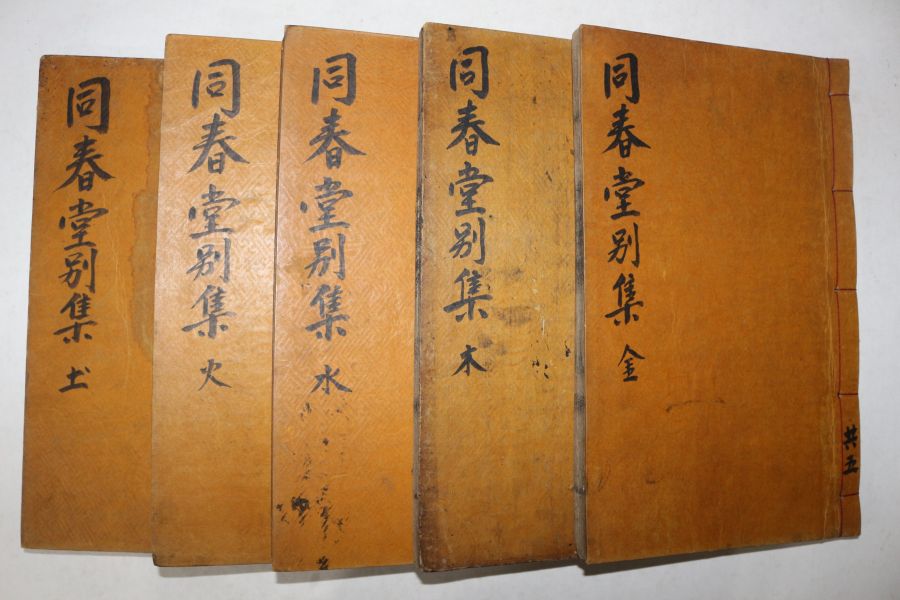 同春堂别集 金
共五
同春堂别集 木
同春堂别集 水
同春堂别集 火
同春堂别集 土